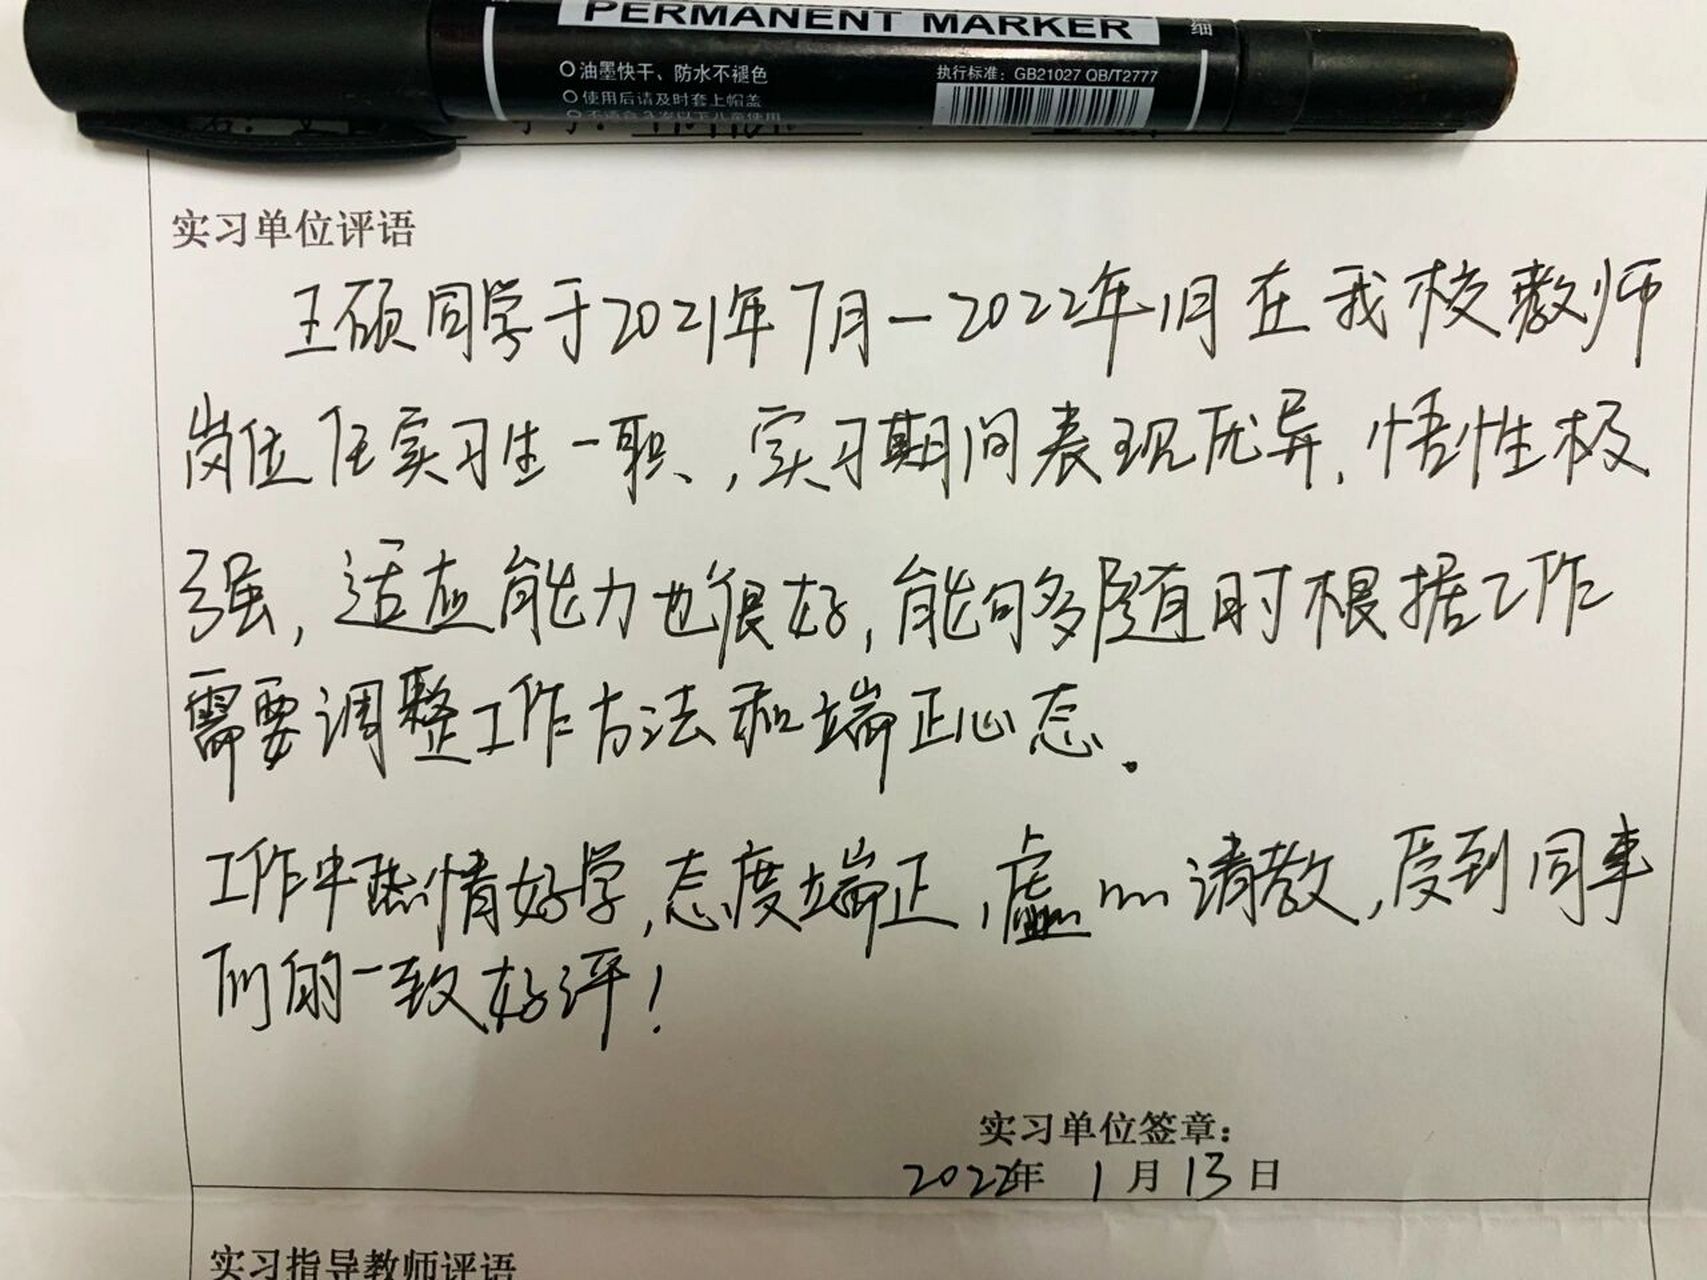 PERMANENT MARKER
细
油墨快干、防水不褪色
执行标准：GB21027 QB/T2777
使用后请及时套上帽盖
不适合3岁以下儿童使用
实习单位评语
王硕同学于2021年7月—2022年1月在我校教师
岗位任实习生一职，实习期间表现优异，悟性极
强，适应能力也很好，能够多随时根据工作
需要调整工作方法和端正心态.
工作中热情好学，态度端正，虚心请教，受到同事
们的一致好评！
实习单位签章：
2022年 1月13日
实习指导教师评语